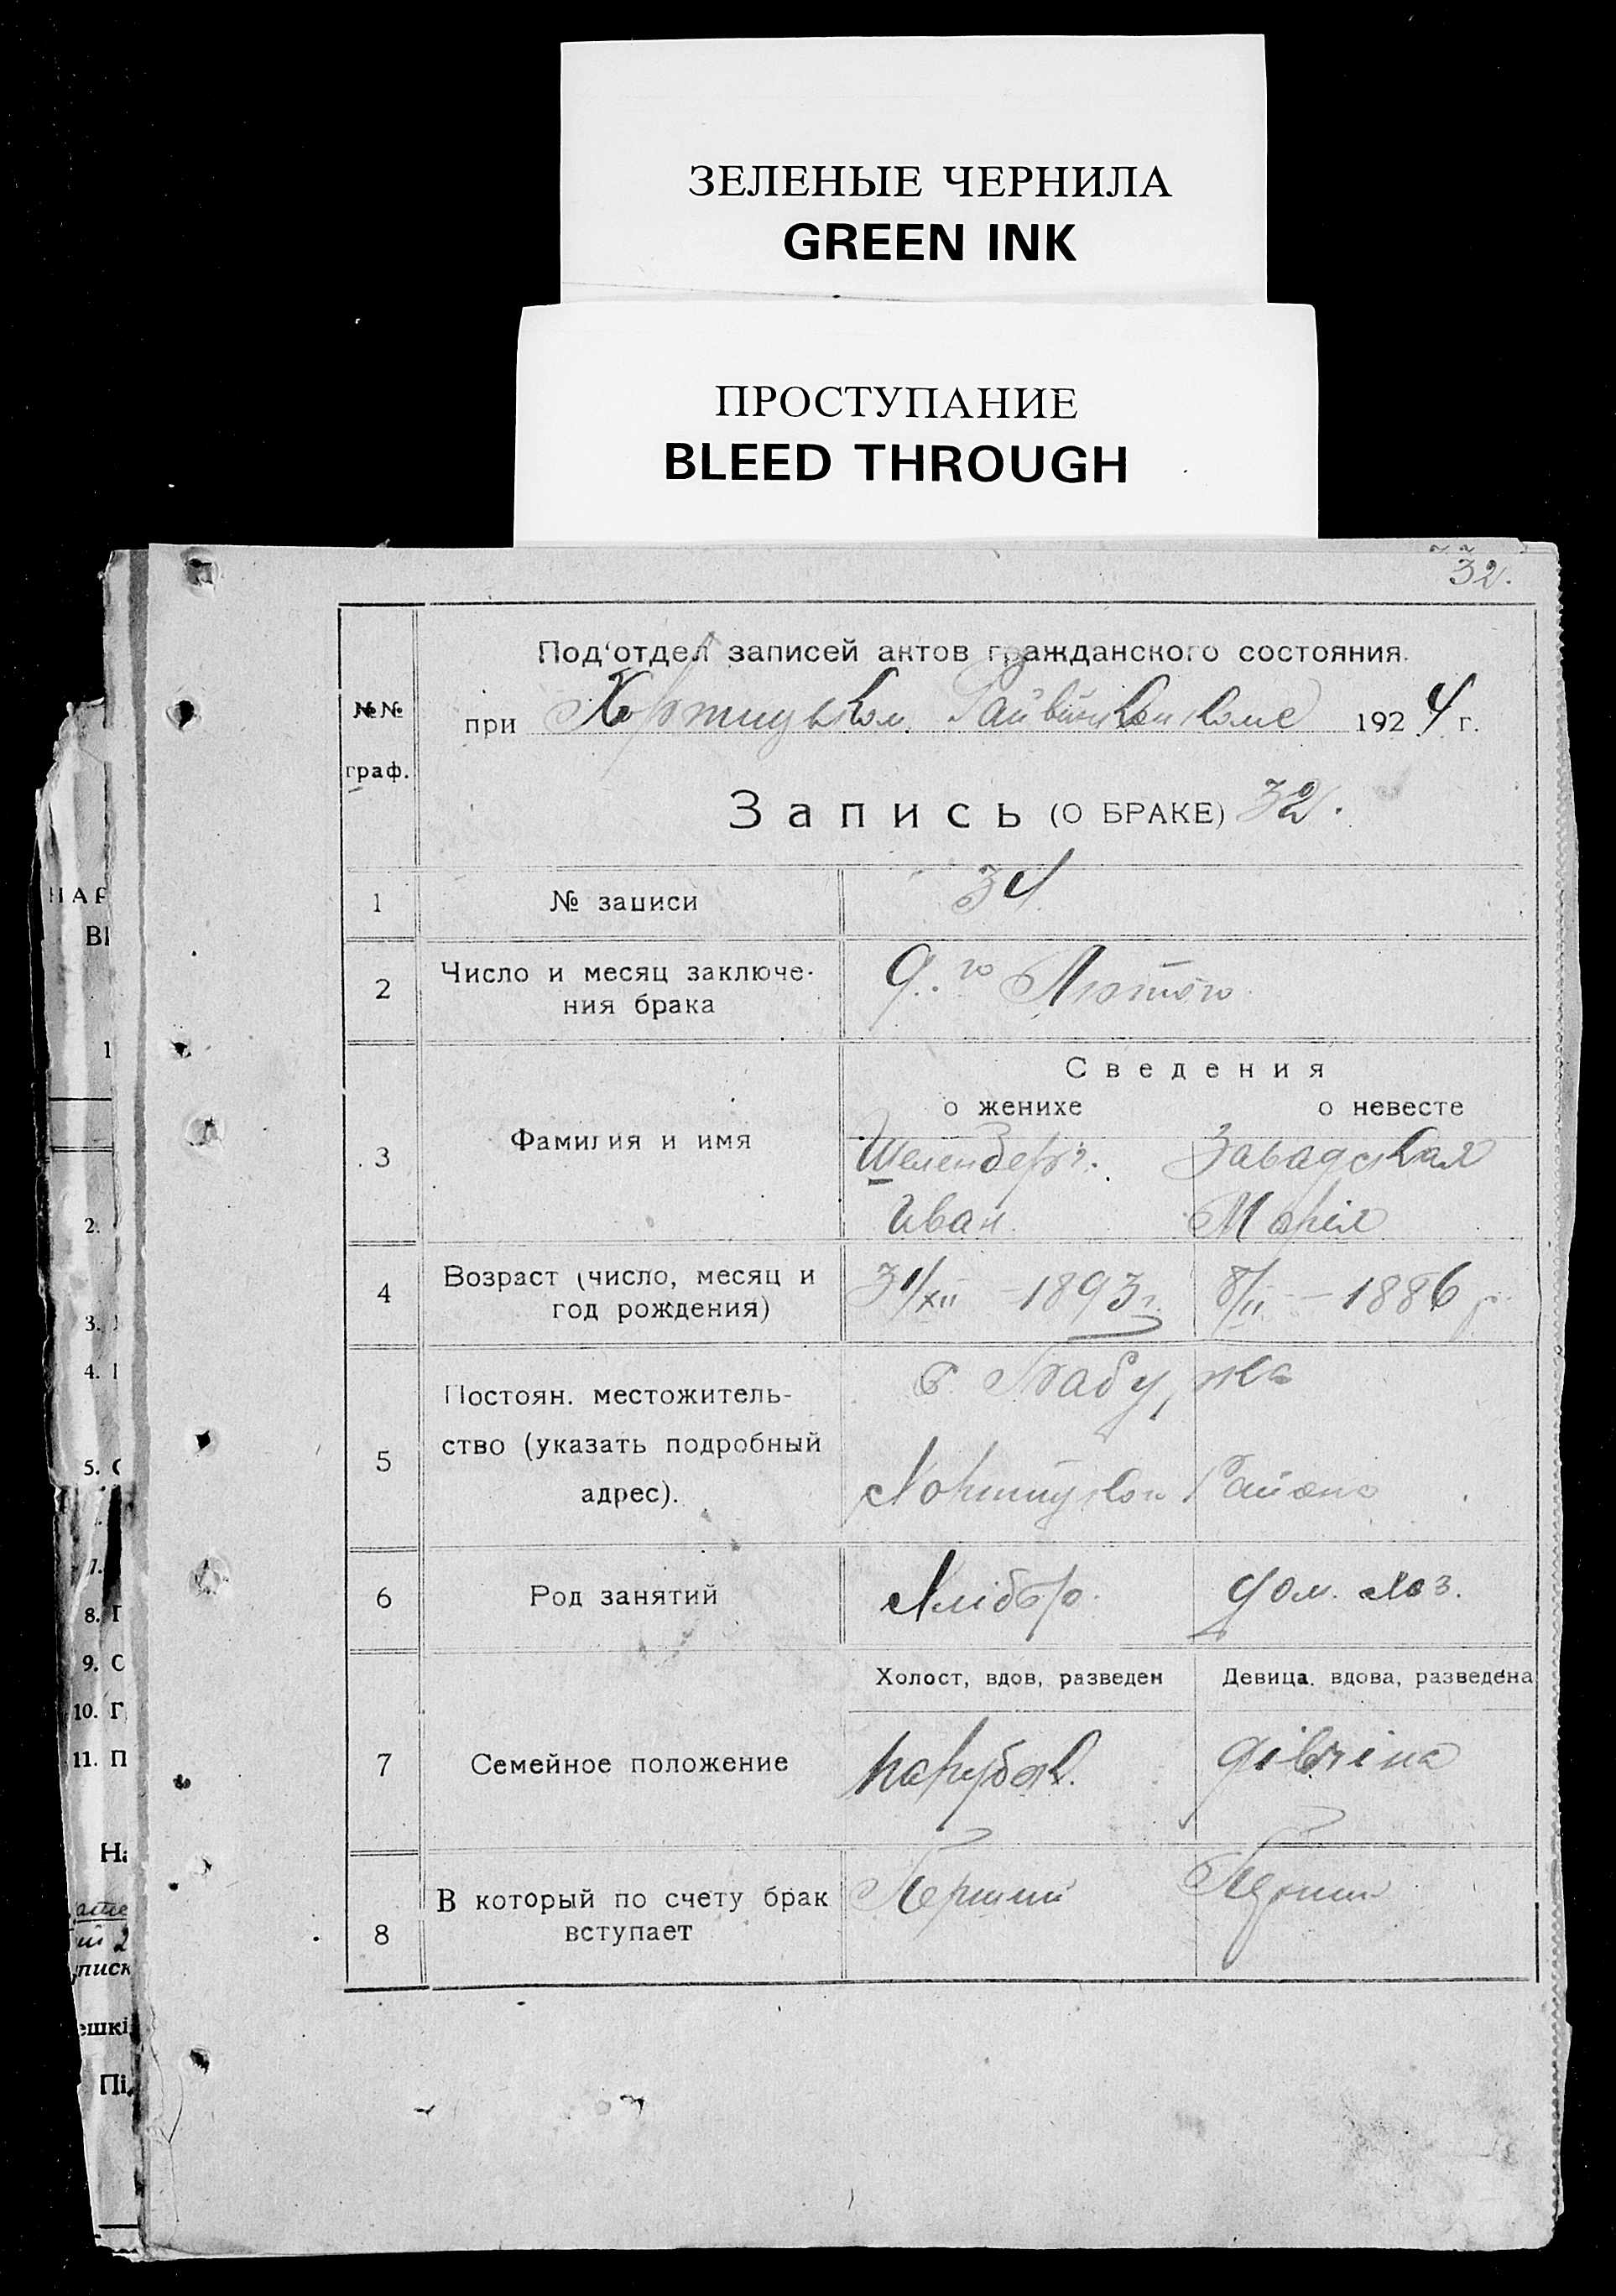 ЗЕЛЕНЫЕ ЧЕРНИЛА
GREEN INK
ПРОСТУПАНИЕ
BLEED THROUGH
32.
№№ граф.
Под'отдел записей актов гражданского состояния.
при Хортицьком Райвиконкоме 1924 г.
Запись (О БРАКЕ) 32.
1 № записи 34
2 Число и месяц заключе-
ния брака 9.го Лютого
Сведения
о женихе о невесте
3 Фамилия и имя Шеленберг. Завадская
Иван Марія
4 Возраст (число, месяц и
год рождения) 31/XII – 1893 г. 8/II – 1886 р.
5 Постоян. местожитель-
ство (указать подробный
адрес).
с. Бабурка
Хортицьком Району
6 Род занятий Хлібор. дом. хоз.
Холост, вдов, разведен Девица, вдова, разведена
7 Семейное положение парубок. дівчина
8 В который по счету брак
вступает Перший Перший
НАР
ВІ
1
2.
3.
4.
5. С
7.
8. Г
9. С
10. Г
11. П
На
писк
ешкі
Пі